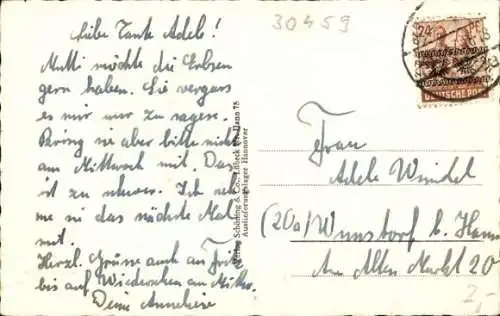 30459
Liebe Tante Adele!
Mutti möchte die Erbsen
gern haben. Sie vergass
es mir nur zu sagen.
Bring sie aber bitte nicht
am Mittwoch mit. Das
ist zu schwer. Ich neh-
me sie das nächste Mal
mit.
Herzl. Grüsse auch an
bis auf Wiedersehen am Mittw.
Deine Anneliese
Verlag Schöning & Co., Lübeck
Auslieferungslager Hannover
24
DEUTSCHE POST
Frau
Adele Windel
(20a) Wunstorf b. Hann
Am Alten Markt 20
2,-